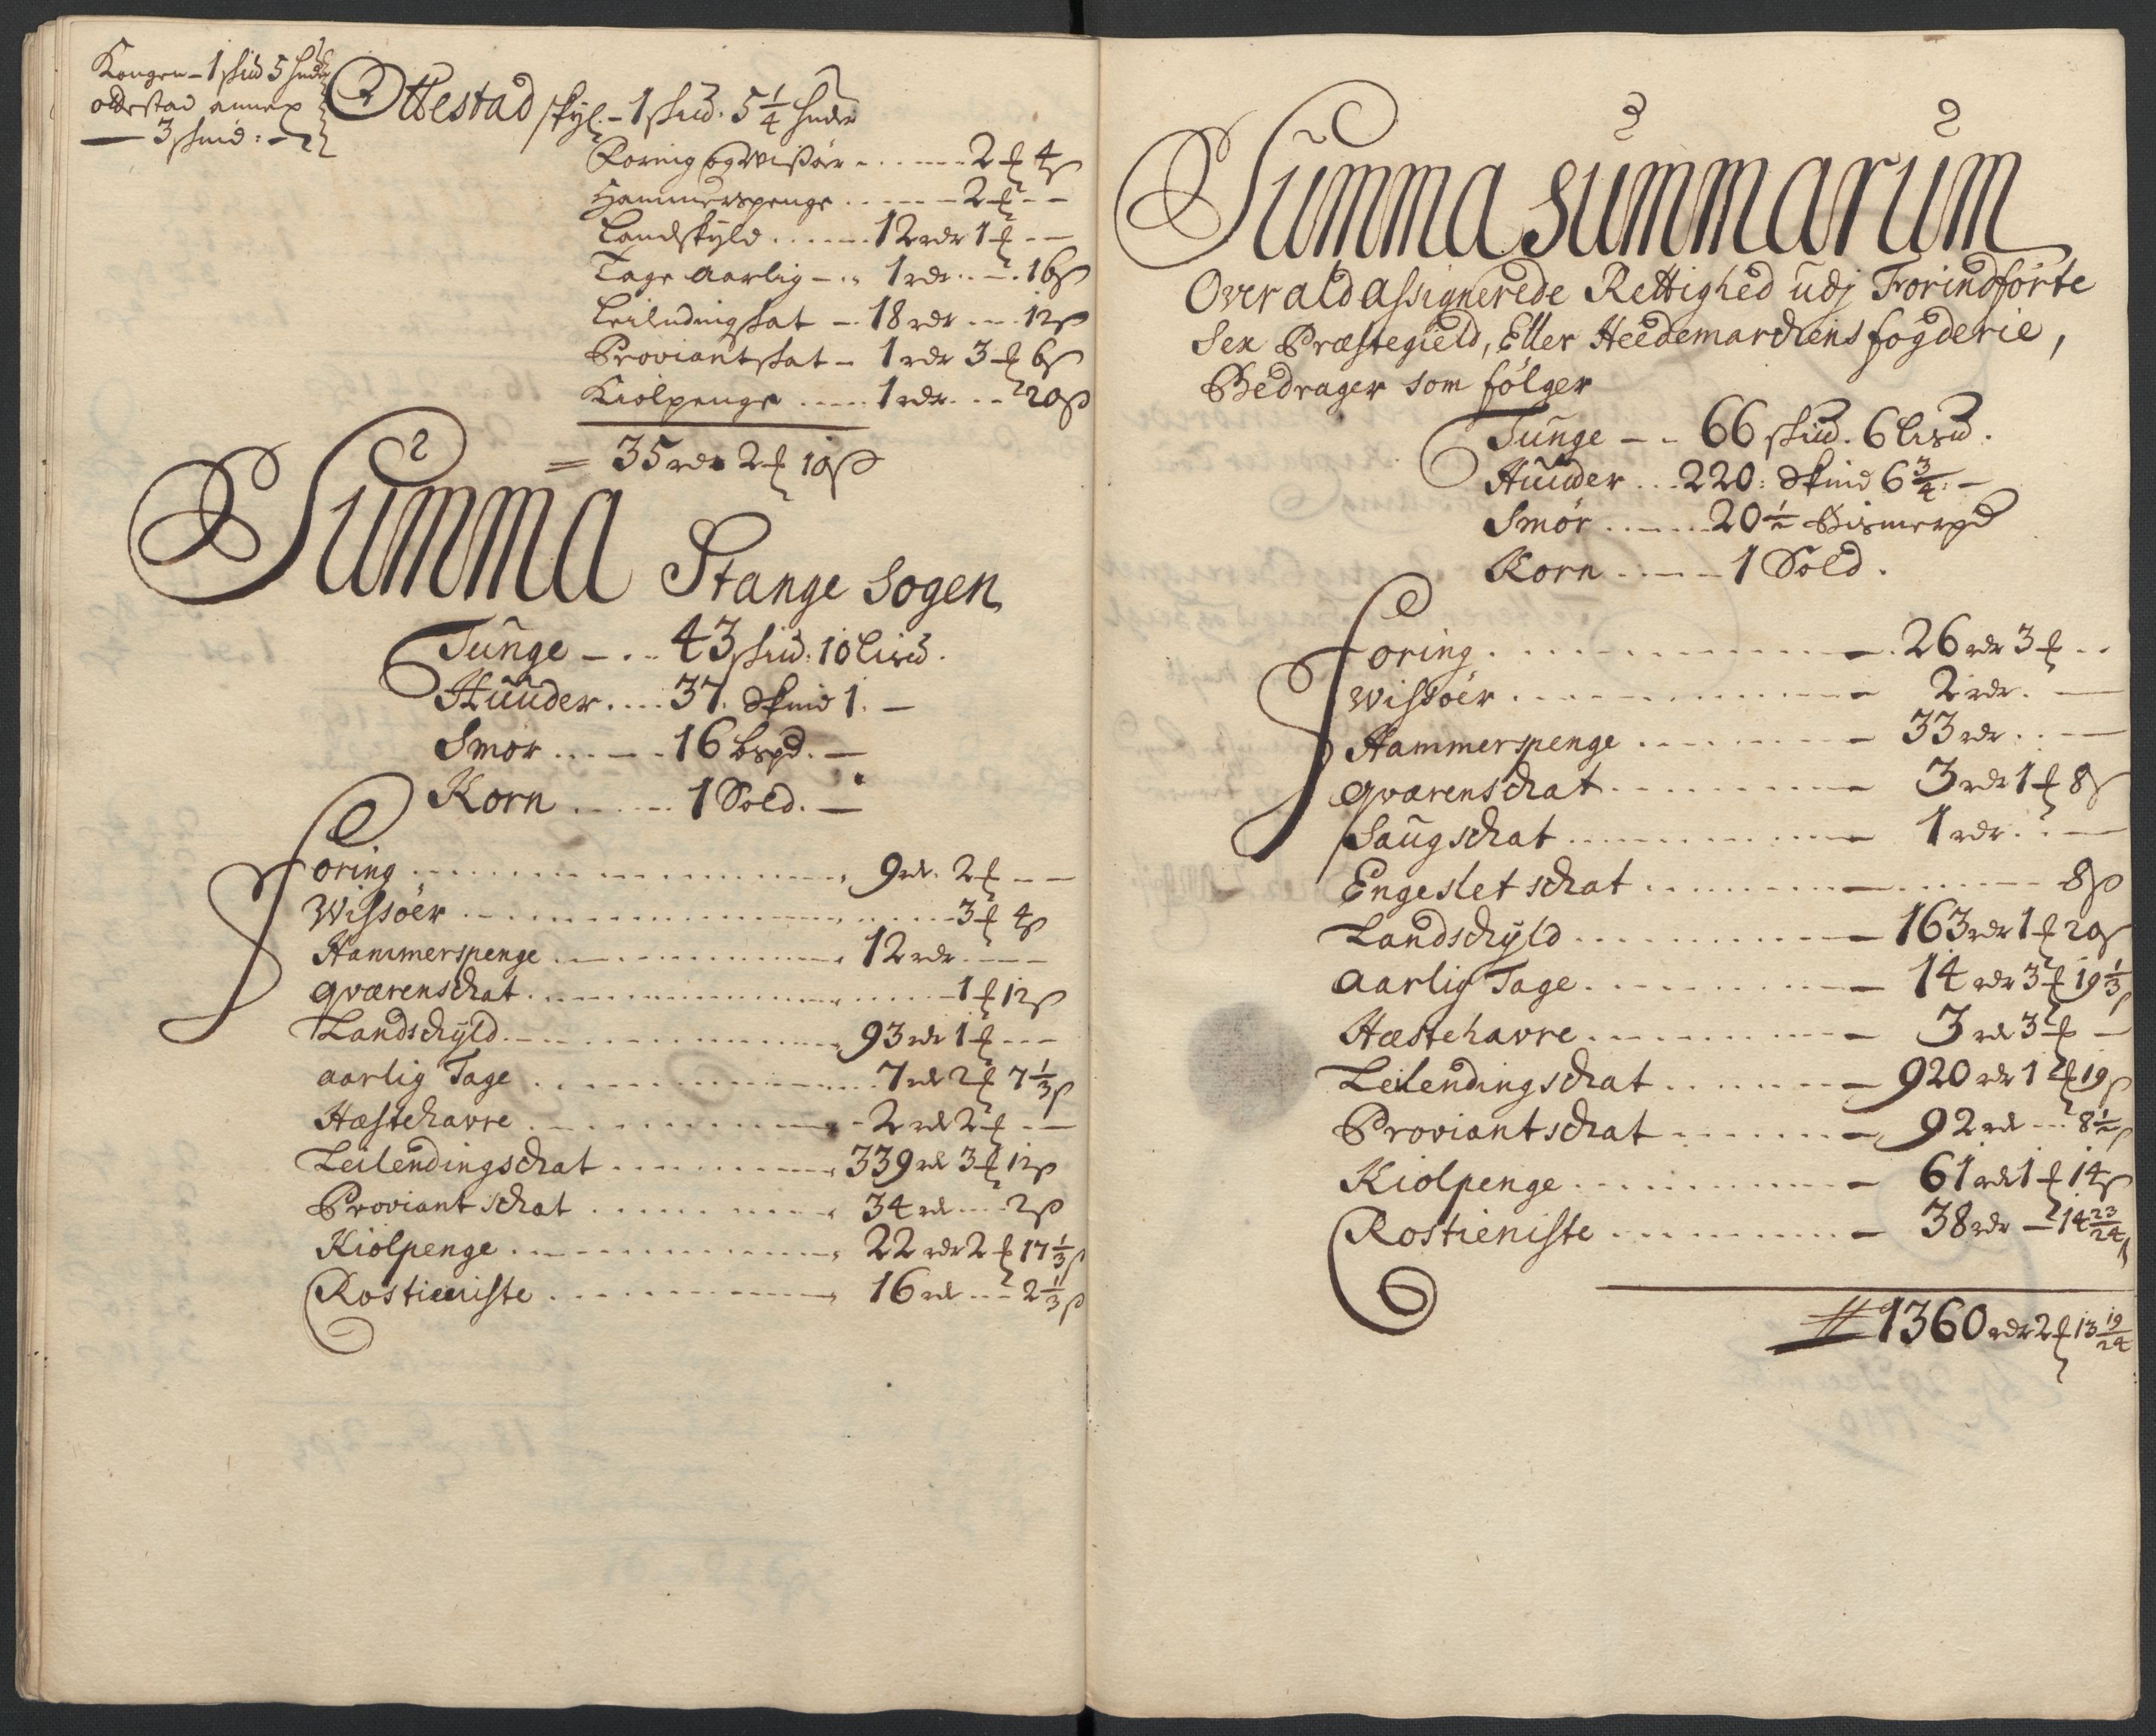 Kongen - 1 skud 5 hudr
ottestad annex
— 3 skind: -
Ottestad skyl. - 1 skud. 5 1/4 hudr
Foring og Wissør - ..... 2 ƒ 4 ß
Hammerspenge ..... 2 ƒ - -
Landskyld ...... 12 rdr 1 ƒ - -
Tage aarlig - .. 1 rdr .. - . 16 ß
Leilendingskat - . 18 rdr - - . 12 ß
Proviantskat - 1 rdr 3 ƒ 6 ß
Kiolpenge ..... 1 rdr. - - 20 ß
= 35 rdr 2 ƒ 10 ß
Summa Stange Sogen
Tunge - . . 43 skud: 10 Lisud.
Huuder .... 37. Skind 1. -
Smør ..... 16 bspd. -
Korn ...... 1 Sold. -
Foring ........ 9 rdr. 2 ƒ - -
Wissøer ........ 3 ƒ 4 ß
Hammerspenge ........ 12 rdr. - - -
Qværenschat ........ 1 ƒ 12 ß
Landschyld ........ 93 rdr 1 ƒ - - -
aarlig Tage ........ 7 rdr 2 ƒ 7 1/3 ß
Hæstehavre ........ 2 rdr 2 ƒ - -
Leilendingschat ........ 339 rdr 3 ƒ 12 ß
Proviantschat ........ 34 rdr ... 2 ß
Kiolpenge ........ 22 rdr 2 ƒ 17 1/3 ß
Rostieniste ........ 16 rdr - - 2 1/3 ß
Summa summarum
Over ald assignerede Rettighed udj Forindførte
Sex Præstegield, Eller Heedemarchens fogderie,
Bedrager som følger
Tunge - . 66 skud. 6 Lisud.
Huuder ... 220: Skind 6 3/4: -
Smør ...... 20 1/2 Bismerpd
Korn ..... 1 Sold.
Foring ........ 26 rdr 3 ƒ - -
Wissøer ........ 2 rdr. -
Hammerspenge ........ 33 rdr .. -
Qværenschat ........ 3 rdr 1 ƒ 8 ß
Saugschat ........ 1 rdr. . -
Engesletschat ........ 8 ß
Landschyld ........ 163 rdr 1 ƒ 20 ß
Aarlig Tage ........ 14 rdr 3 ƒ 19 1/3 ß
Hæstehavre ........ 3 rdr 3 ƒ -
Leilendingschat ........ 920 rdr 1 ƒ 19 ß
Proviantschat ........ 92 rdr - - 8 1/2 ß
Kiolpenge ........ 61 rdr 1 ƒ 14 ß
Rostieniste ........ 38 rdr - 14 23/24 ß
1360 rdr 2 ƒ 13 19/24